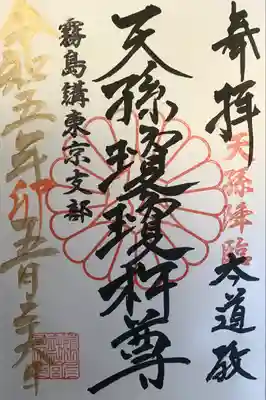 奉拝
天孫降臨
天孫瓊瓊杵尊
霧島講東京支部
令和五年卯五月